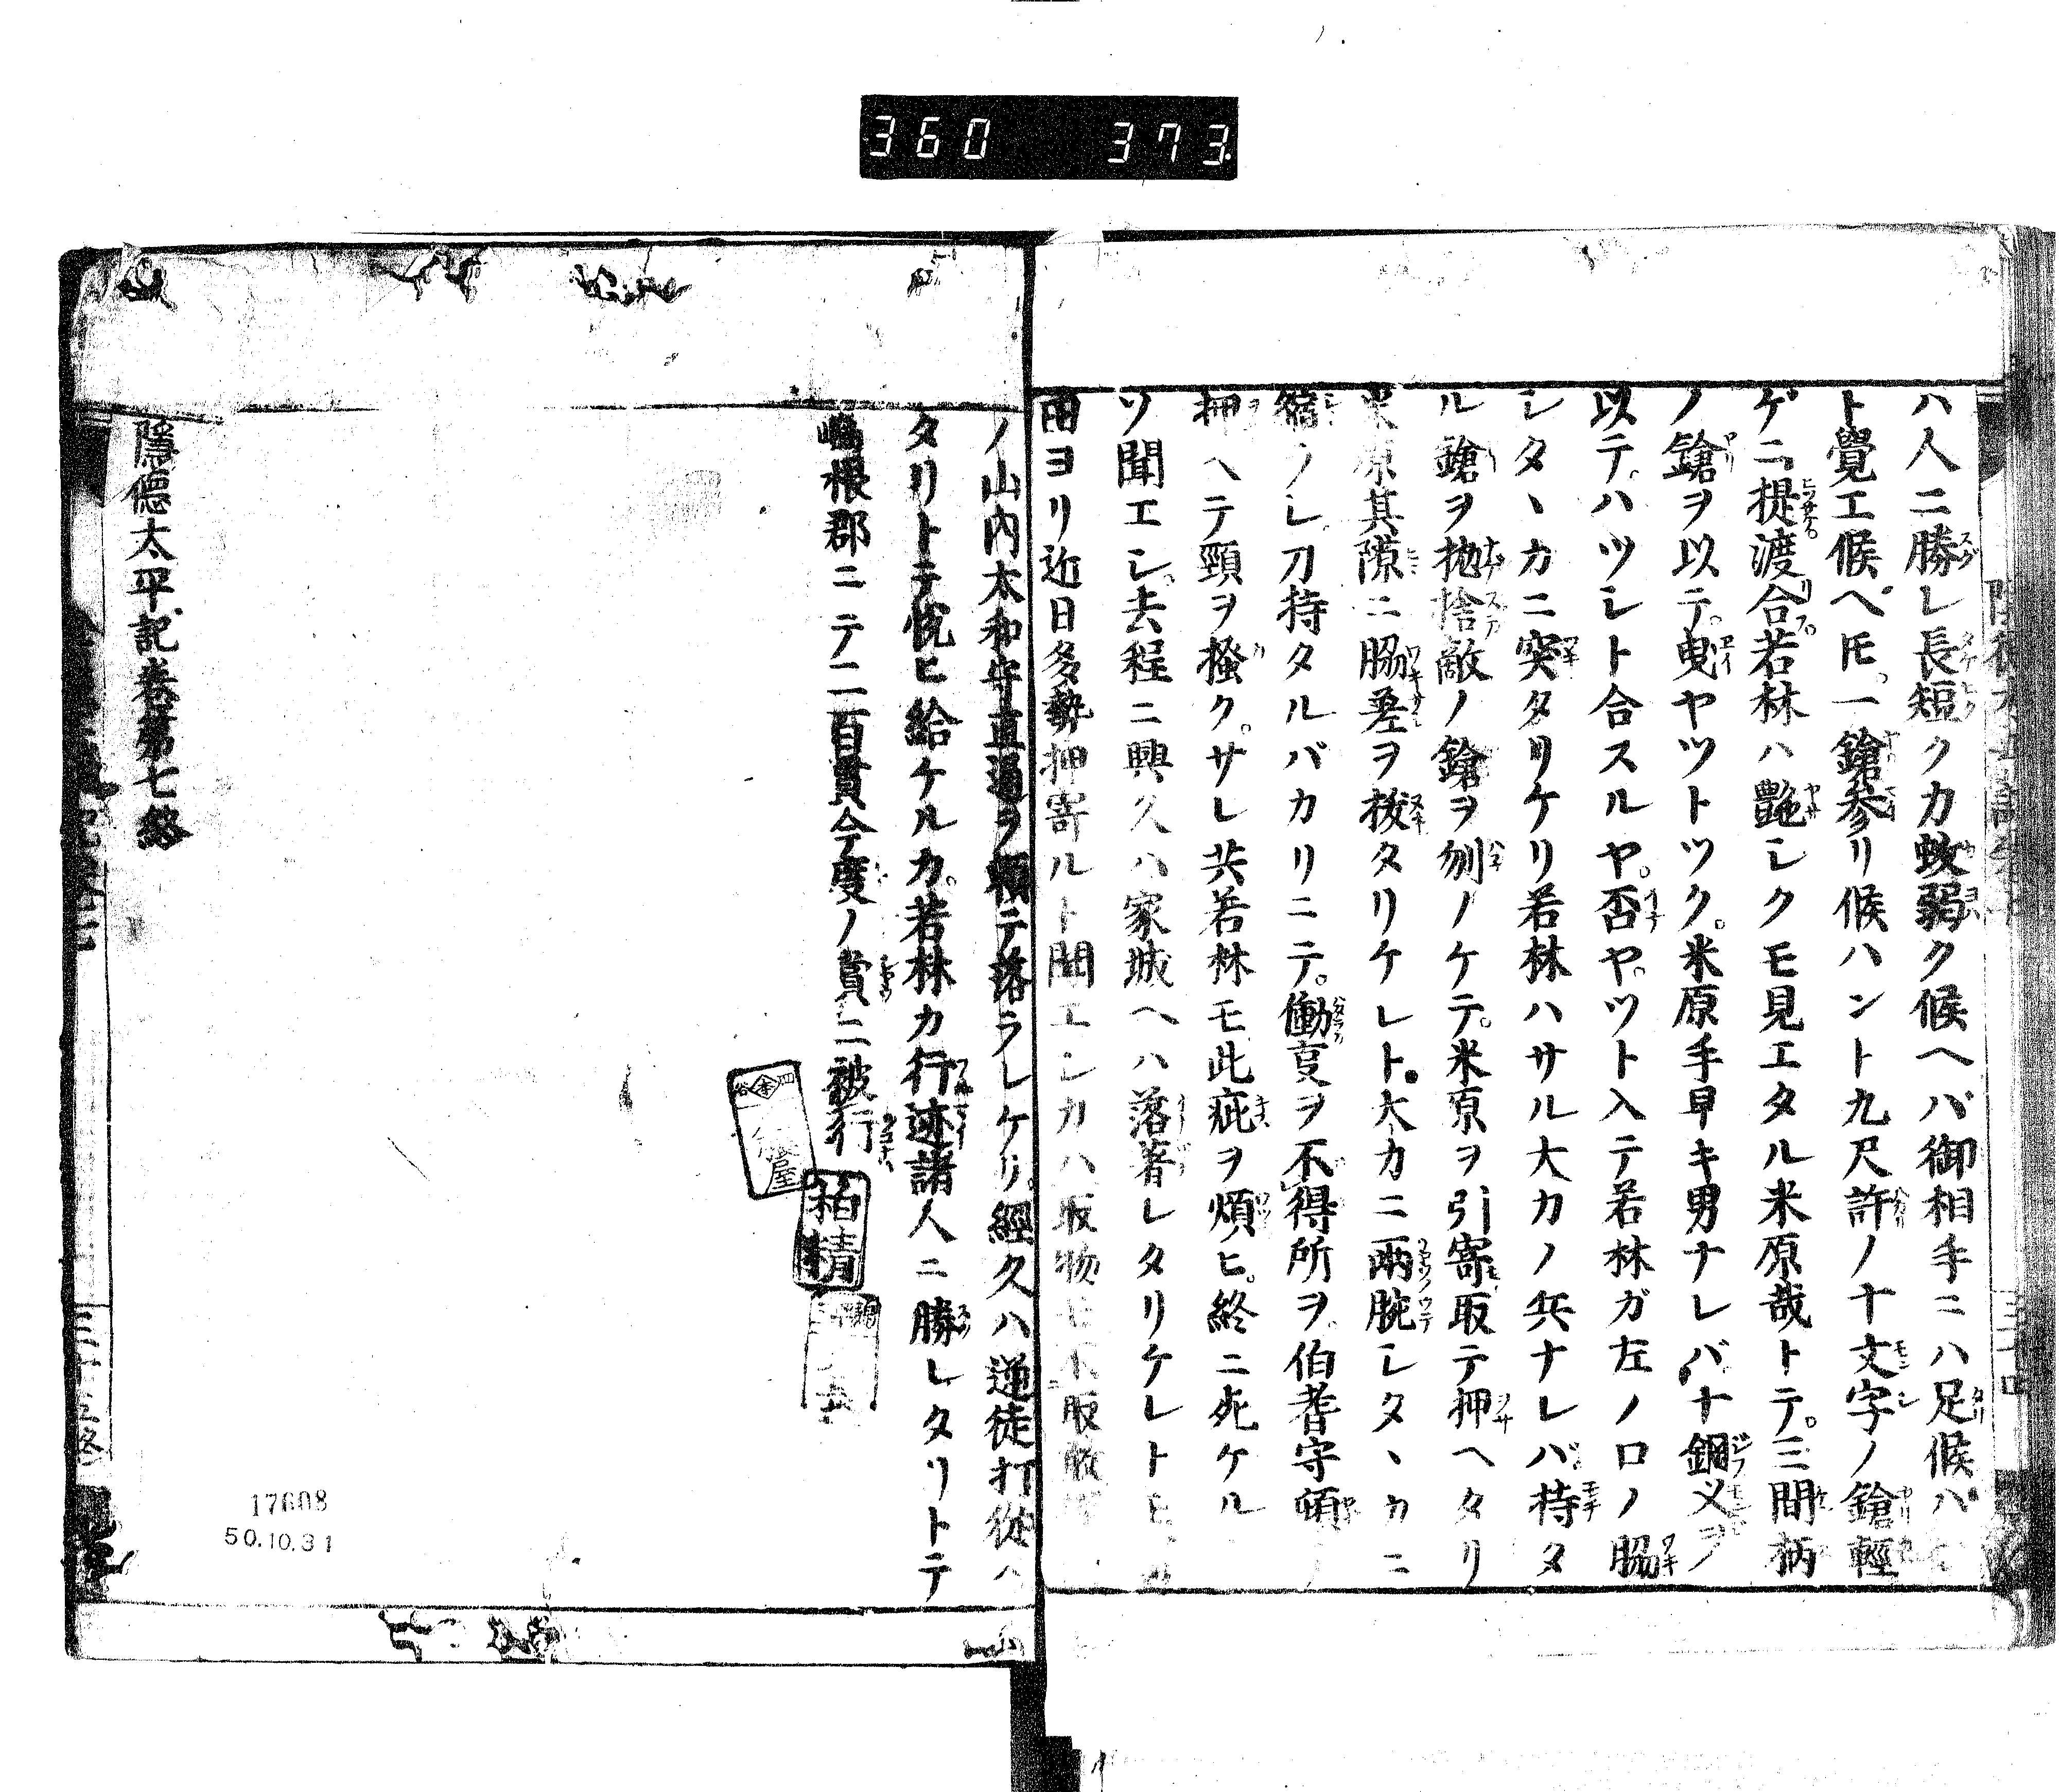 360 373
ハ人ニ勝レ長短クカ蚊弱ク候ヘバ御相手ニハ足候ハ
ト覺エ候ヘ𪜈一鎗参リ候ハント九尺許ノ十文字ノ鎗輕
ゲニ提渡合若林ハ艶シクモ見エタル米原哉トテ。三間柄
ノ鎗ヲ以テ。曳ヤツトツク。米原手早キ男ナレバ十鋼乂ヲ
以テ。ハツシト合スルヤ。否ヤ。ツト入テ若林ガ左ノロノ脇
シタヽカニ突タリケリ若林ハサル大カノ兵ナレバ持タ
ル鎗ヲ抛捨敵ノ鎗ヲ刎ノケテ。米原ヲ引寄取テ押ヘタリ
米原其隙ニ脇差ヲ抜タリケレト。大カニ兩腕シタヽカニ
ノレ刀持タルバカリニテ。働叓ヲ不得所ヲ。伯耆守頓
押ヘテ頸ヲ掻ク。サレ共若林モ此疵ヲ煩ヒ。終ニ死ケル
ソ聞エシ。去程ニ興久ハ家城ヘハ落着レタリケレトモ
田ヨリ近日多勢押寄ルト聞エシカハ取物
ノ山内太和守直通ヲ頼テ落ラレケリ。經久ハ逆徒打從ヘ
タリトテ悦ヒ給ケルカ。若林カ行迹諸人ニ勝レタリトテ
嶋根郡ニテ二百貫今度ノ賞ニ被行
隱德太平記卷第七終
柏精
屋
17608
50.10.31